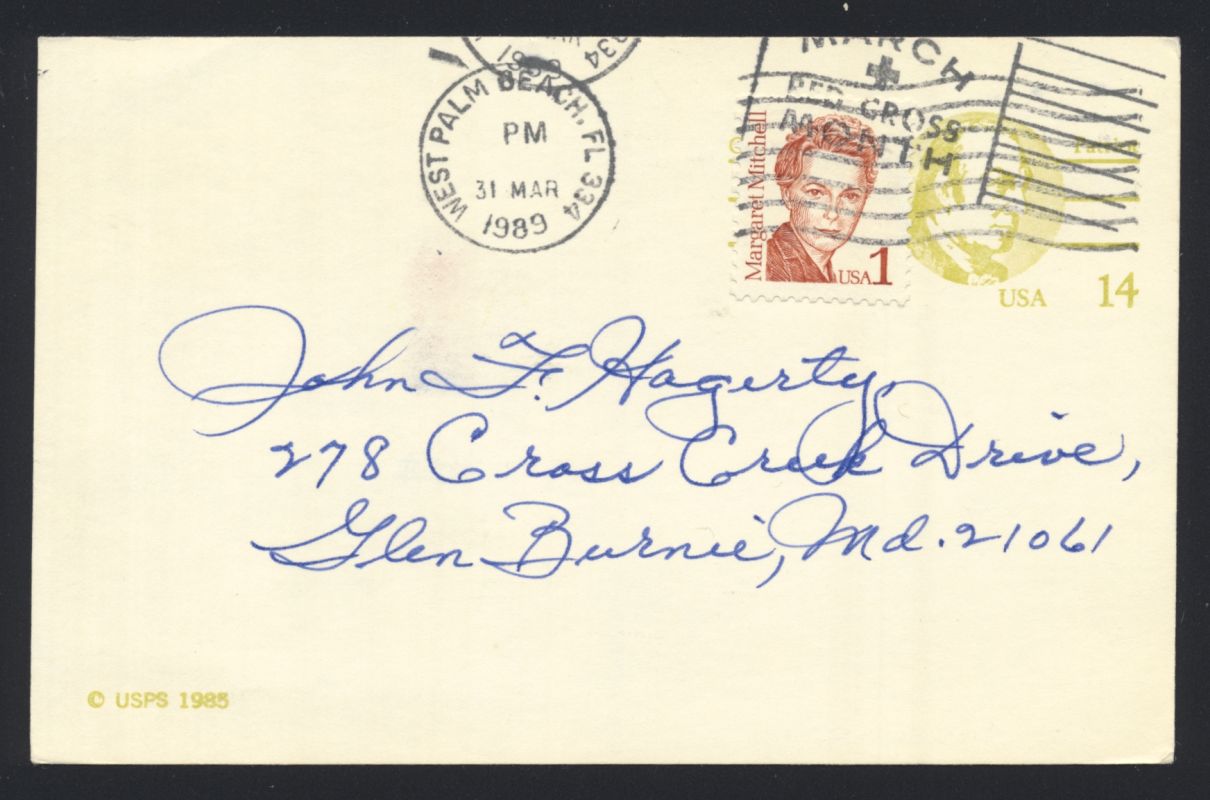 1989
334
WEST PALM BEACH, FL 334
PM
31 MAR
1989
MARCH
RED CROSS
MONTH
Margaret Mitchell
USA 1
USA 14
John F. Hagerty,
278 Cross Creek Drive,
Glen Burnie, Md. 21061
© USPS 1985